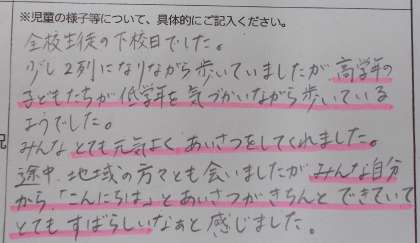 ※児童の様子等について、具体的にご記入ください。
全校生徒の下校日でした。
少し2列になりながら歩いていましたが高学年の
子どもたちが低学年を気づかいながら歩いている
ようでした。
みんなとても元気よくあいさつをしてくれました。
途中、地域の方々とも会いましたがみんな自分
から、「こんにちは」とあいさつがきちんとできていて
とてもすばらしいなぁと感じました。